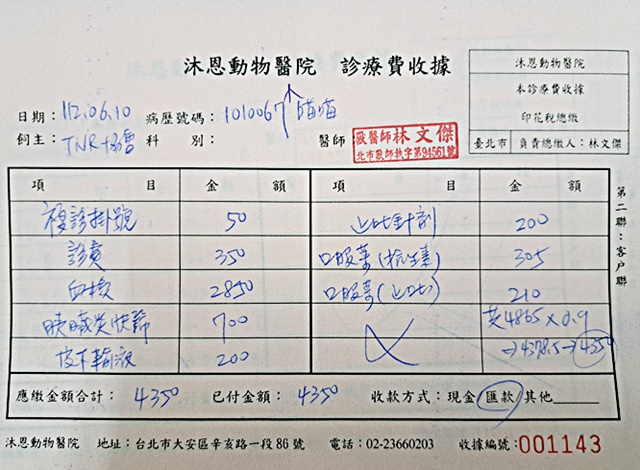 沐恩動物醫院 診療費收據
沐恩動物醫院
本診療費收據
印花稅總繳
臺北市 負責總繳人：林文傑
日期：112.06.10 病歷號碼：1010067 喵喵
飼主：TNR協會 科 別： 醫師 獸醫師 林文傑
北市獸師執字第94561號
項 目 金 額 項 目 金 額
複診掛號 50 止吐針劑 200
診費 350 口服藥(抗生素) 305
血檢 2850 口服藥(止吐) 210
胰臟炎快篩 700 共4865×0.9
皮下輸液 200 →4378.5→4350
第二聯：客戶聯
應繳金額合計：4350 已付金額：4350 收款方式：現金 匯款 其他
沐恩動物醫院 地址：台北市大安區辛亥路一段86號 電話：02-23660203 收據編號：001143